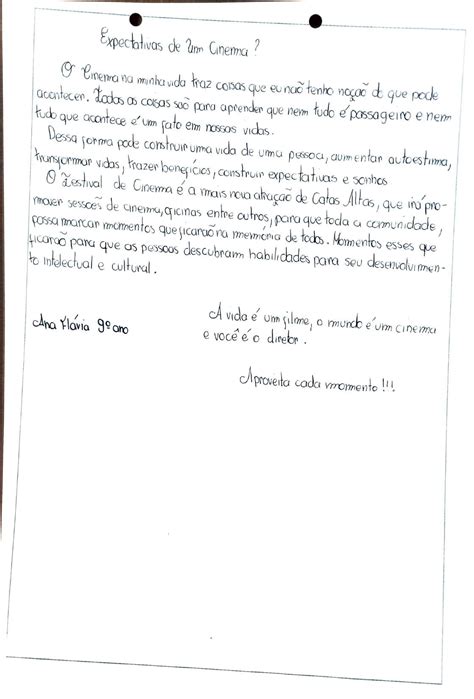 Expectativas de um Cinema?
O Cinema na minha vida traz coisas que eu não tenho noção d que pode
acontecer. Todas as coisas são para aprender que nem tudo é passageiro e nem
tudo que acontece é um fato em nossas vidas.
Dessa forma pode construir uma vida de uma pessoa, aumentar autoestima,
transformar vidas, trazer benefícios, construir expectativas e sonhos
O Festival de Cinema é a mais nova atração de Catas Altas, que irá pro-
mover sessões de cinema, oficinas entre outros, para que toda a comunidade,
possa marcar momentos que ficarão na memória de todos. Momentos esses que
ficarão para que as pessoas descubram habilidades para seu desenvolvimen-
to intelectual e cultural.
Ana Flávia 9º ano
A vida é um filme, o mundo é um cinema
e você é o diretor.
Aproveita cada momento!!!